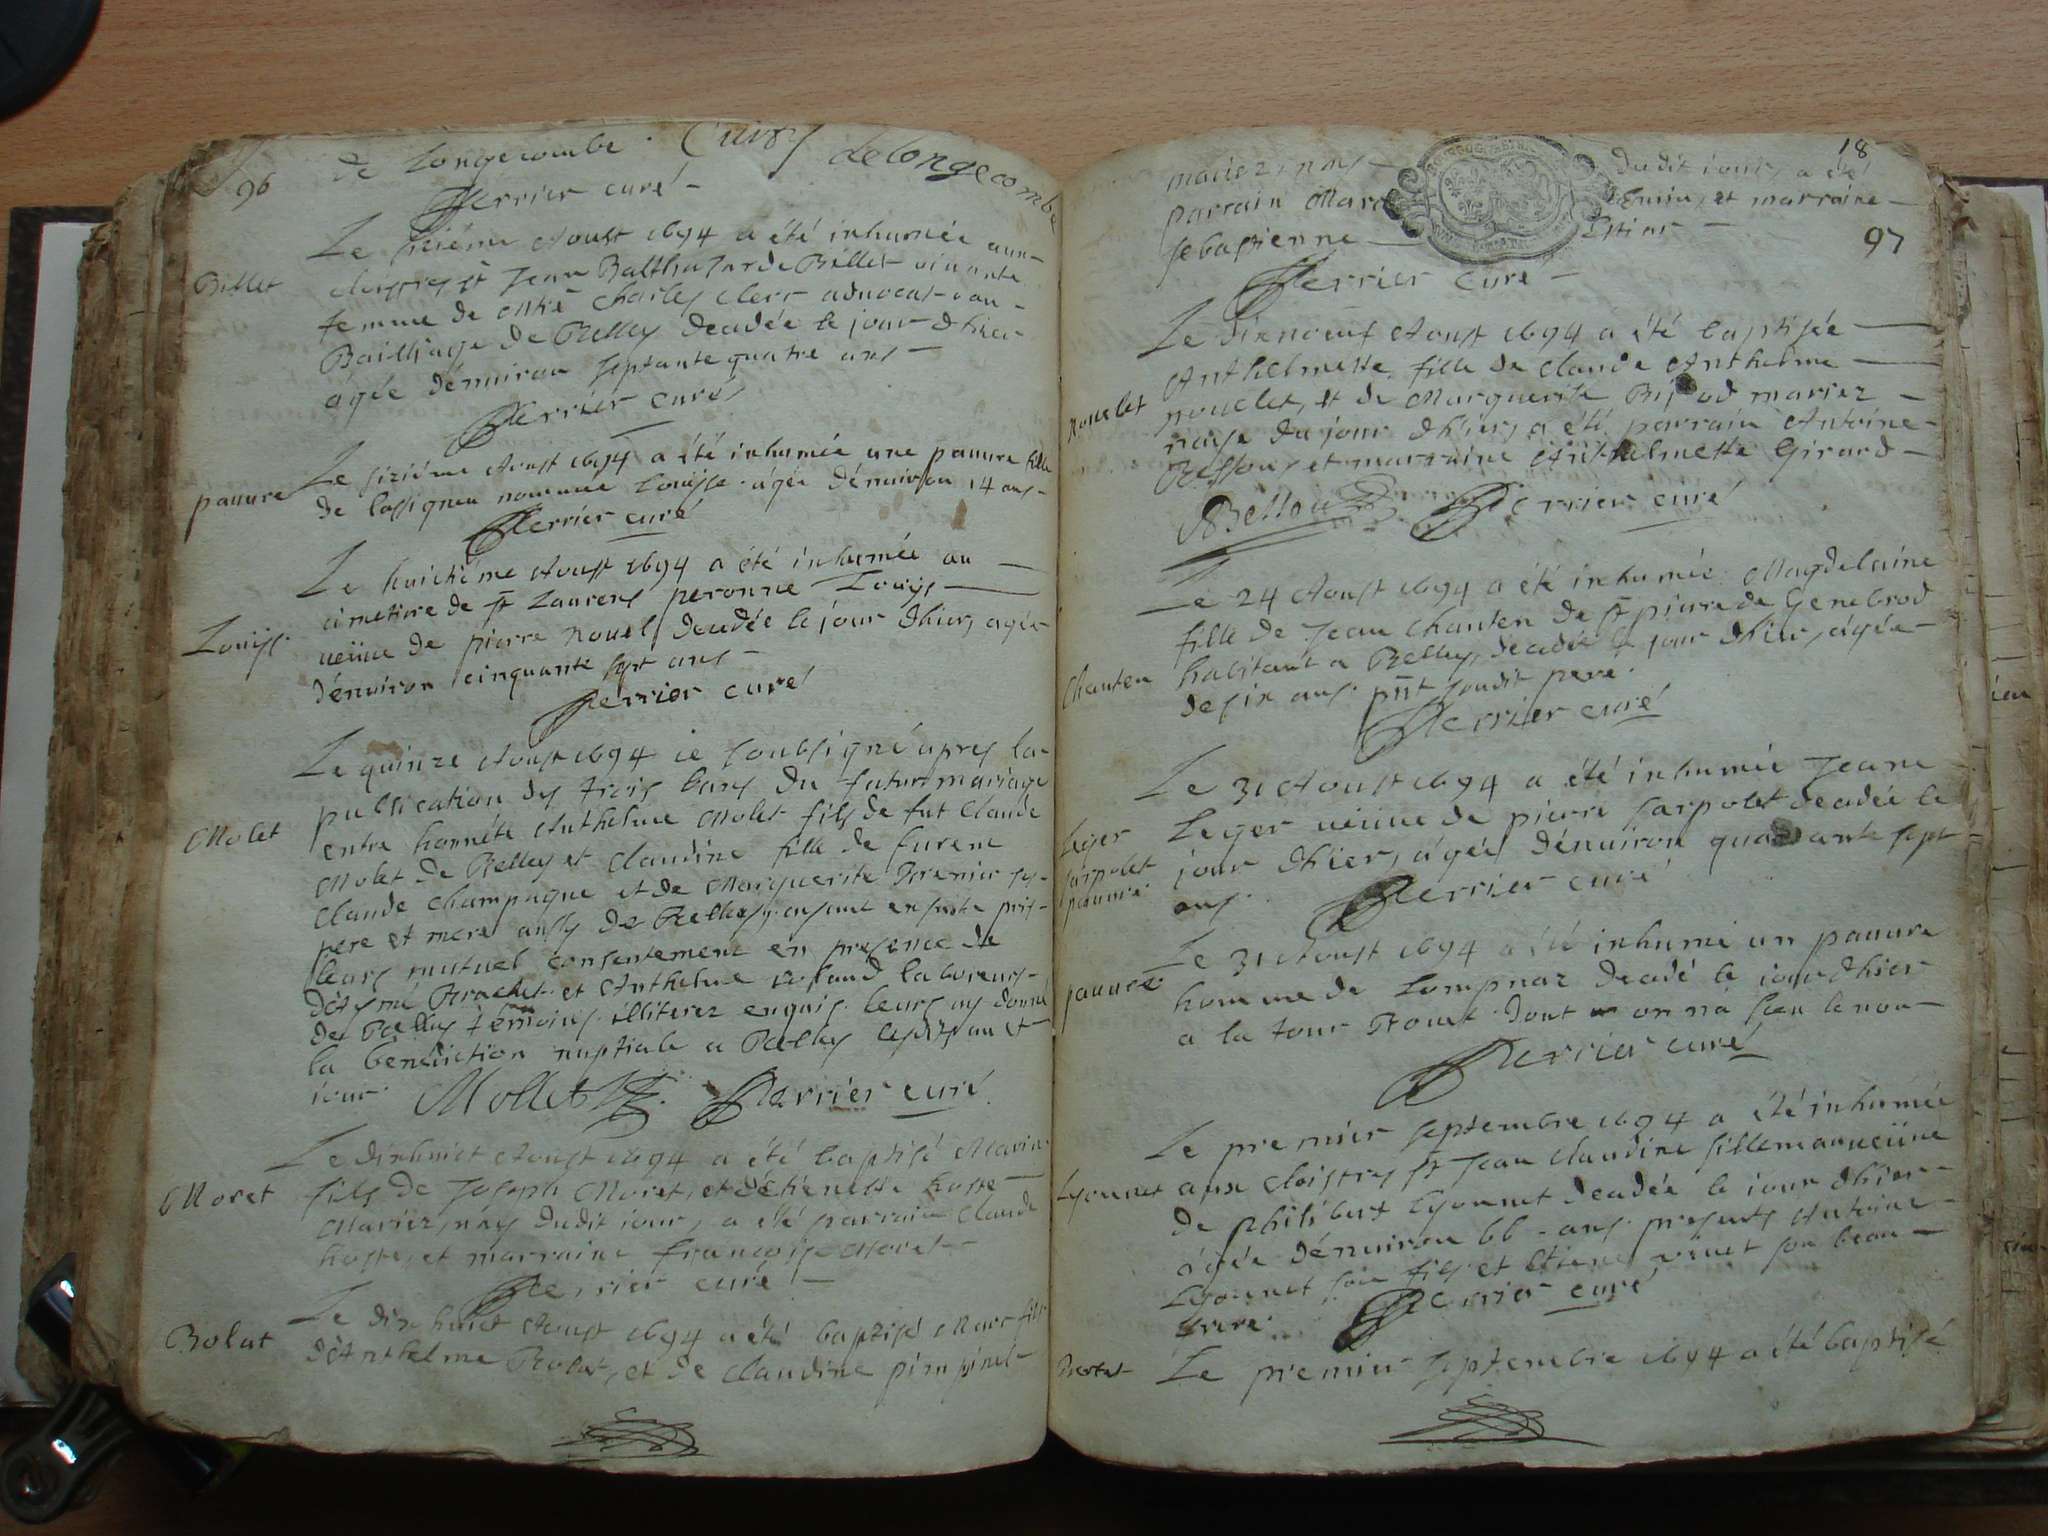 96
de Longecombe. Cuivry delongecombe
Perrier curé
Le sixiéme Aoust 1694 a été inhumée aux
Billet
cloistres st Jean Balthasarde Billet vivante
femme de Mre Charles Clerc advocat au
Bailliage de Belley decedée le jour d'hier
agée dénuiron septante quatre ans
Perrier curé
Le siziéme Aoust 1694 a été inhumée une pauure fille
pauure
de lassigneu nommée Louïse agée dénuiron 14 ans
Perrier curé
Le huictiéme Aoust 1694 a été inhumée au
cimetiere de st Laurens peronne Louys
Louys
veüue de pierre nouel decedée le jour dhier, agée
dénuiron cinquante sept ans
Perrier curé
Le quinze Aoust 1694 ie soubsigné apres la
publication des trois bans du futur mariage
Molet
entre honnéte Anthelme Molet fils de fut Claude
Molet de Belley et Claudine fille de furent
Claude Champagne et de Marguerite ses
pere et mere aussy de Belley, ayant ensuite pris
leurs mutuel consentement en presence de
Brachet et Anthelme Roland laboureurs
de Belley témoins illiterez enquis leurs ay donné
la benediction nuptiale a Belley lesdits an et
iour. Mollet Perrier curé
Le dixhuict Aoust 1694 a été baptisé Marin
Moret
fils de Joseph Moret, et détienette hoste
Mariez, náy dudit iour, a été parrain Claude
hoste, et marraine françoise Moret
Perrier curé
Le dixhuict Aoust 1694 a été baptisé Marc fils
Bolut
dAnthelme Bolut, et de Claudine pimpinet
18
mariez, nay dudit iour, a été
parrain Marc et marraine
sebastienne
97
Perrier curé
Le dixneuf Aoust 1694 a été baptisée
Anthelmette fille de Claude Anthelme
nouelet
nouelet, et de Marguerite mariez
naye du jour dhier, a été parrain Antoine
Bellou, et marraine Anthelmette Girard
Bellou Perrier curé
Le 24 Aoust 1694 a été inhumée Magdelaine
fille de Jean Chanten de st pierre de Genebrod
Chanten
habitant a Belley, decedée le jour dhier, agée
de six ans. pnt soudit pere.
Perrier curé
Le 31 Aoust 1694 a été inhumée Jeane
Leger
sarpolet
pauure
Leger veüue de pierre sarpolet decedée le
jour dhier, agée dénuiron quarante sept
ans.
Perrier curé
Le 31 Aoust 1694 a été inhumé un pauure
pauure
homme de Lompnaz decedé le iour dhier
a la tour dont on n'a sceu le nom
Perrier curé
Le premier septembre 1694 a été inhumée
Lyonnet
aux cloistres st Jean Claudine veüue
de philibert Lyonnet decedée le iour dhier
agée dénuiron 66 ans. presents Antoine
Lyonnet son fils et son beau
frere. Perrier curé
Le premier septembre 1694 a été baptisé